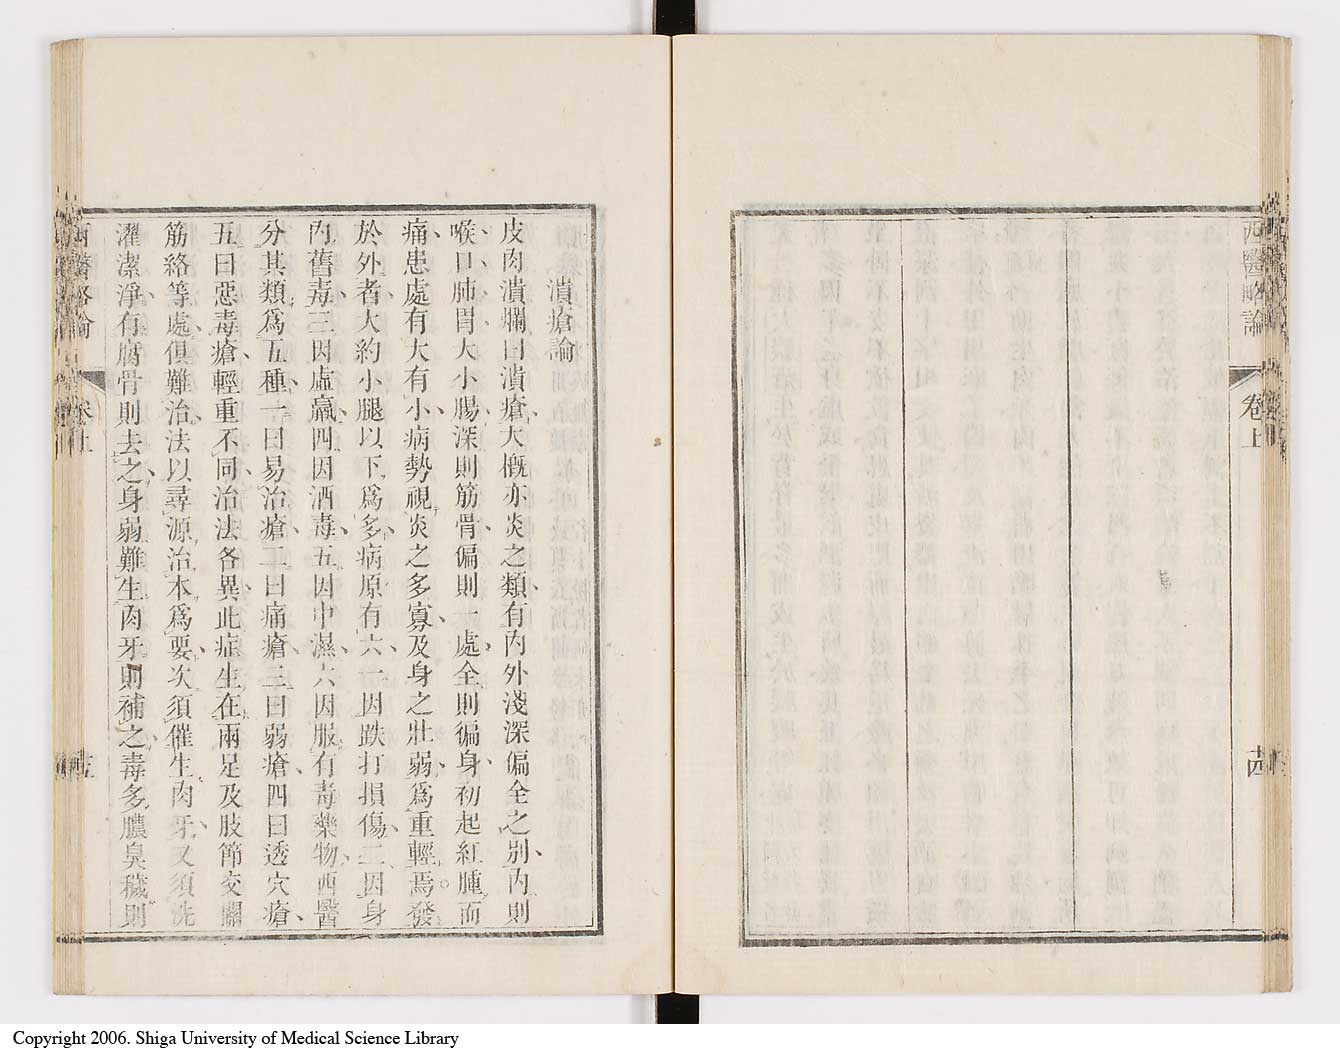 西醫略論
卷上
十四
潰瘡論
皮肉潰爛曰潰瘡大概亦炎之類有內外淺深偏全之別內則
喉口肺胃大小腸深則筋骨偏則一處全則徧身初起紅腫而
痛患處有大有小病勢視炎之多寡及身之壯弱爲重輕焉發
於外者大約小腿以下爲多病原有六一因跌打損傷二因身
內舊毒三因虛羸四因酒毒五因中濕六因服有毒藥物西醫
分其類爲五種一曰易治瘡二曰痛瘡三曰弱瘡四曰透穴瘡
五曰惡毒瘡輕重不同治法各異此症生在兩足及肢節交關
筋絡等處俱難治法以尋源治本爲要次須催生肉牙又須洗
濯潔淨有腐骨則去之身弱難生肉牙則補之毒多膿臭穢則
西醫略論
卷上
十五
Copyright 2006. Shiga University of Medical Science Library